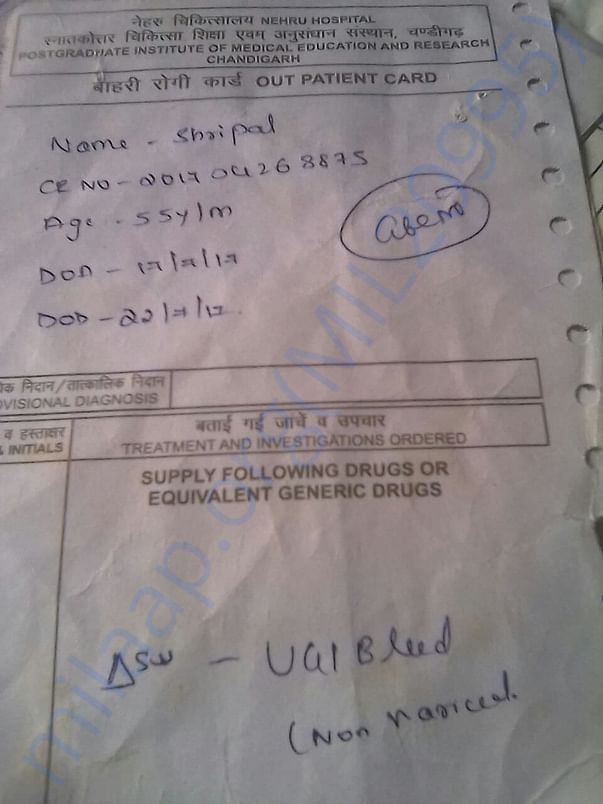 नेहरु चिकित्सालय NEHRU HOSPITAL
स्नातकोत्तर चिकित्सा शिक्षा एवम अनुसंधान संस्थान, चण्डीगढ़
POSTGRADUATE INSTITUTE OF MEDICAL EDUCATION AND RESEARCH
CHANDIGARH
बाहरी रोगी कार्ड OUT PATIENT CARD
Name - Shripal
CR NO - 201704268875
Age - 55y/m
DOA - 17/7/17
DOD - 22/7/17
निदान/तात्कालिक निदान
VISIONAL DIAGNOSIS
व हस्ताक्षर
& INITIALS
बताई गई जाचें व उपचार
TREATMENT AND INVESTIGATIONS ORDERED
SUPPLY FOLLOWING DRUGS OR
EQUIVALENT GENERIC DRUGS
- UGI Bleed
(Non variceal.